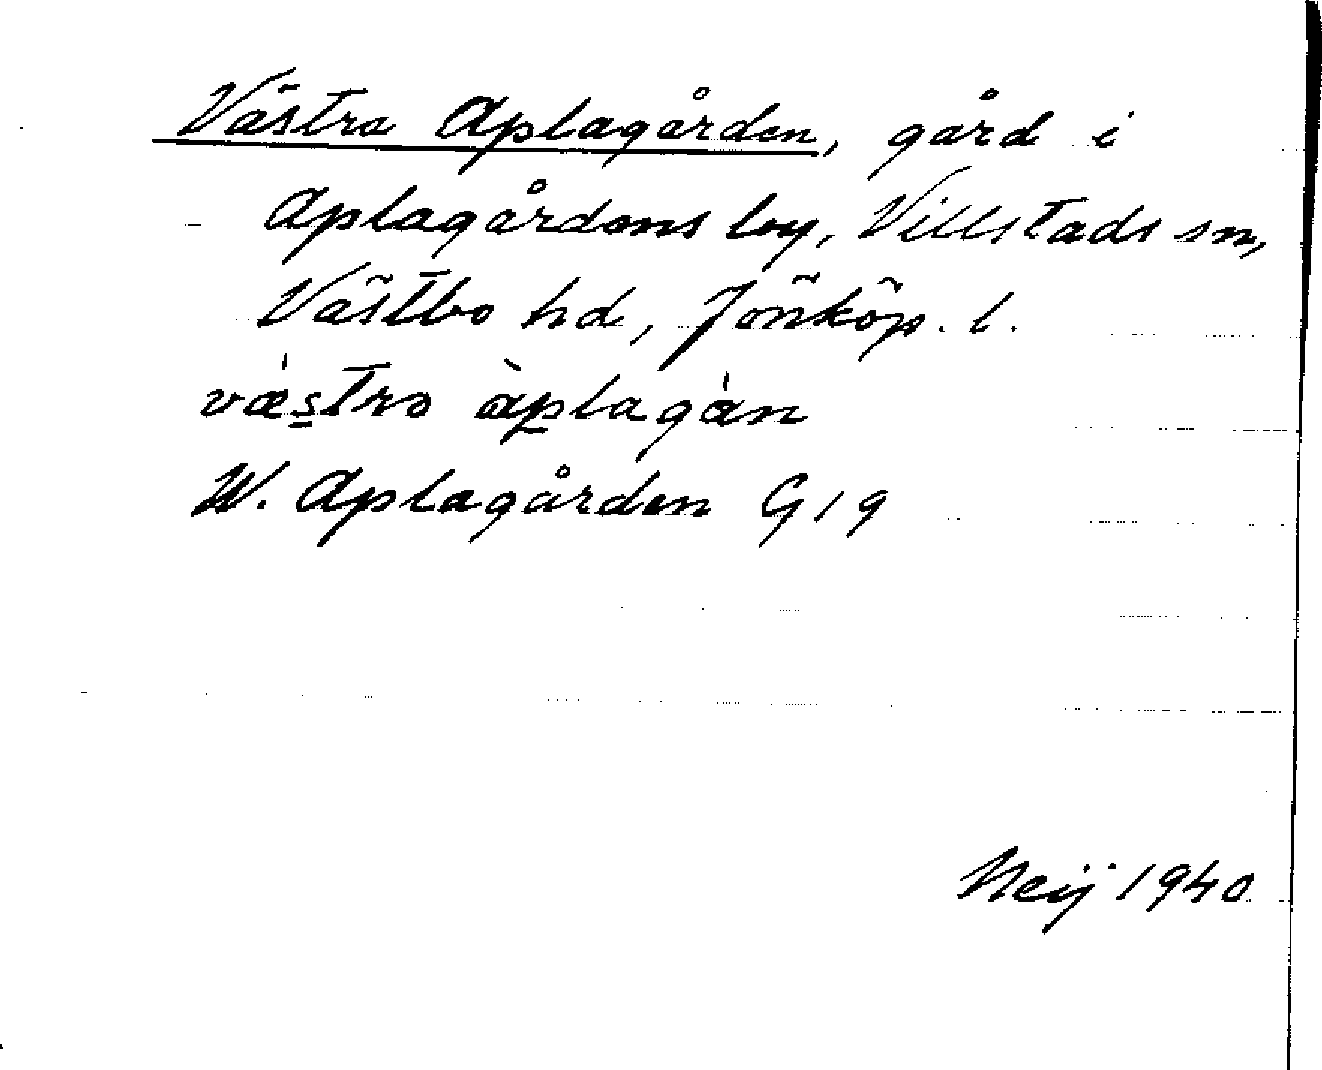 Västra Aplagården, gård i
Aplagårdens by, Villstads sn,
Västbo hd, Jönköp. l.
væ̀stra àplagán
W. Aplagården G 19
Neij 1940